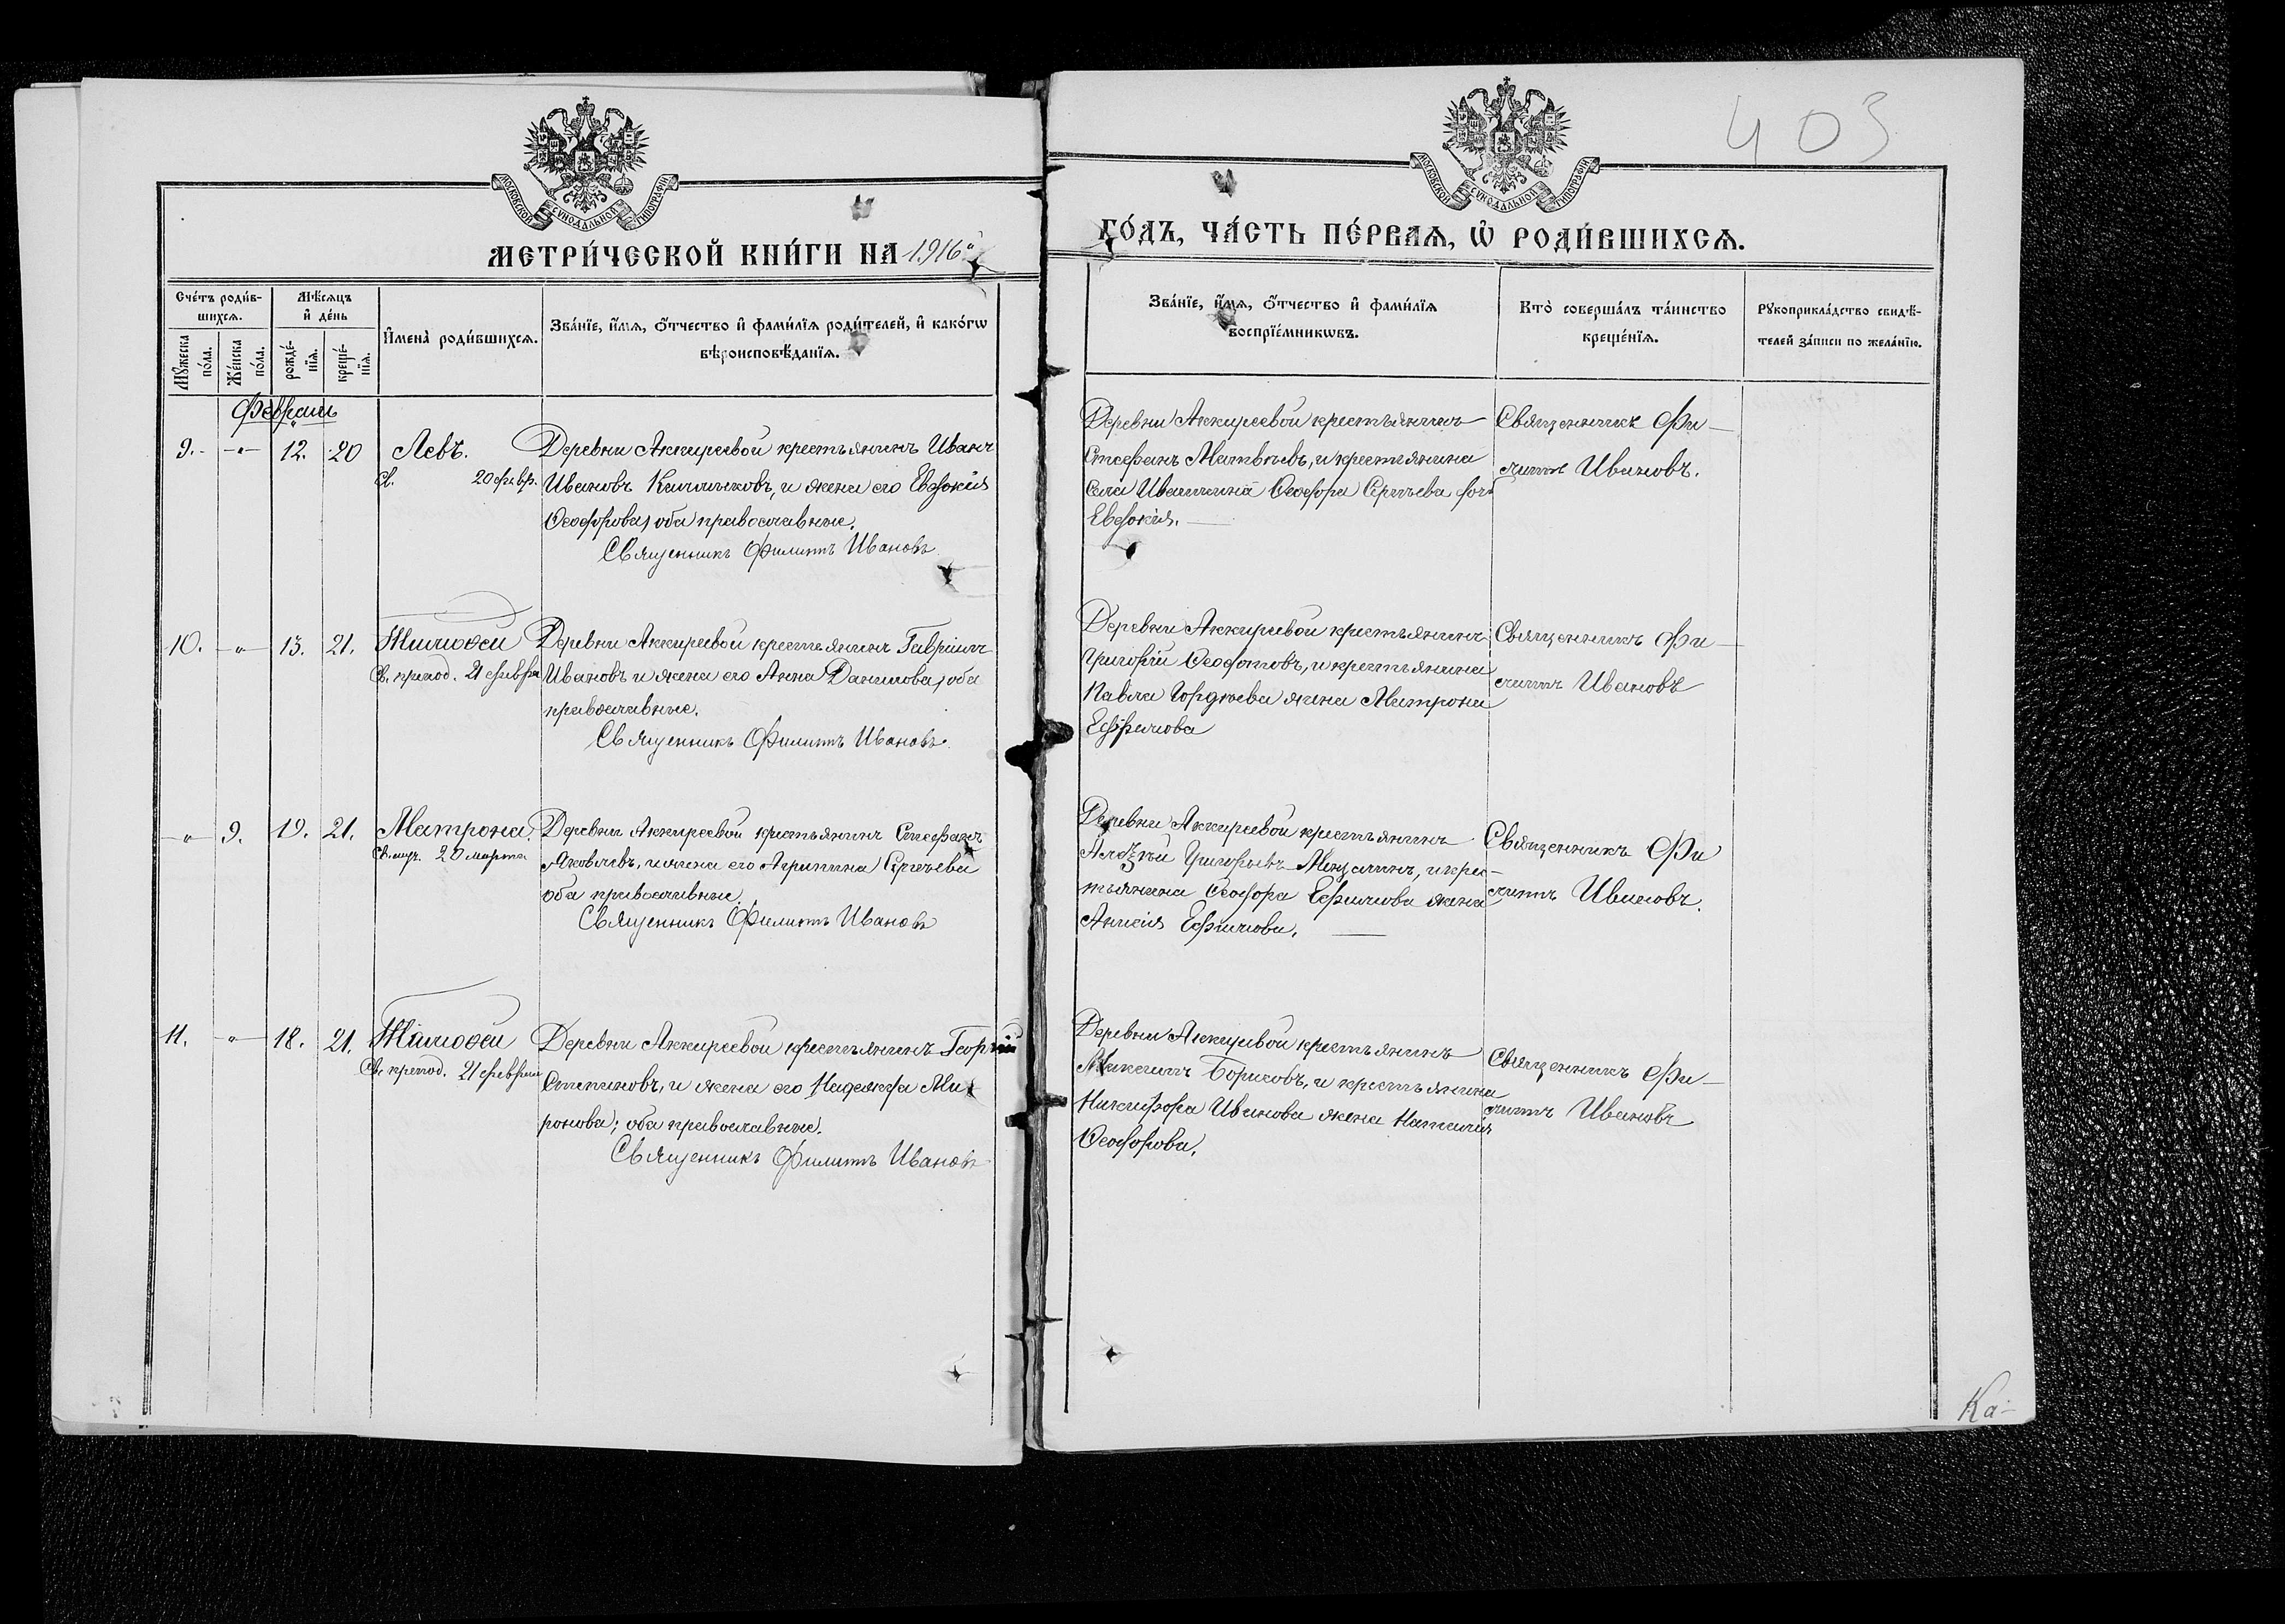 403
МОСКОВСКОЙ СѴНОДАЛЬНОЙ ТИПОГРАФІИ
МОСКОВСКОЙ СѴНОДАЛЬНОЙ ТИПОГРАФІИ
МЕТРИ́ЧЕСКОЙ КНИ́ГИ НА 1916
ГО́ДЪ, ЧА́СТЬ ПЕ́РВАѦ, Ѡ҆ РОДИ́ВШИХСѦ.
Сче́тъ роди́в-
шихсѧ.
Мꙋ́жеска
по́ла.
Же́нска
по́ла.
Мѣ́сѧцъ
и҆ де́нь
рожде́-
нїѧ.
креще́-
нїѧ.
И҆мена̀ роди́вшихсѧ.
Зва́нїе, и҆́мѧ, ѻ҆́тчество и҆ фами́лїѧ роди́телей, и҆ како́гѡ
вѣроисповѣ́данїѧ.
Зва́нїе, и҆́мѧ, ѻ҆́тчество и҆ фами́лїѧ
воспрїе́мникѡвъ.
Кто̀ соверша́лъ та́инство
креще́нїѧ.
Рꙋкоприкла́дство свидѣ́-
телей за́писи по жела́нїю.
Февраль
9. -"- 12. 20
Левъ.
Св. 20 февр.
Деревни Аккиреевой крестьянинъ Иванъ
Ивановъ, и жена его Евдокія
Ѳеодорова, оба православные.
Священникъ Филиппъ Ивановъ
Деревни Аккиреевой крестьянинъ
Стефанъ Матвѣевъ, и крестьянина
села Ивашкина Ѳеодора Сергѣева дочь
Евдокія.
Священникъ Фи-
липпъ Ивановъ.
10. -"- 13. 21.
Тимоѳей
Св. препод. 21 февра
Деревни Аккиреевой крестьянинъ Гавріилъ
Ивановъ и жена его Анна Данилова, оба
православные.
Священникъ Филиппъ Ивановъ.
Деревни Аккиреевой крестьянинъ
Григорій Ѳеодотовъ, и крестьянина
Павла Гордѣева жена Матрона
Ефимова
Священникъ Фи-
липпъ Ивановъ
-"- 9. 19. 21.
Матрона.
Св. муч. 20 марта
Деревни Аккиреевой крестьянинъ Стефанъ
Яковлевъ, и жена его Агрипина Сергѣева
оба православные.
Священникъ Филиппъ Ивановъ
Деревни Аккиреевой крестьянинъ
Алеѯѣй Григорьевъ, и крес-
тьянина Ѳеодора Ефимова жена
Анисія Ефимова.
Священникъ Фи
липпъ Ивановъ.
11. " 18. 21.
Тімоѳей
Св. препод. 21 февраля
Деревни Аккиреевой крестьянинъ Георгій
Степановъ, и жена его Надежда Ми-
ронова; оба православные.
Священникъ Филиппъ Ивановъ
Деревни Аккиреевой крестьянинъ
Михаилъ Борисовъ, и крестьянина
Никифора Иванова жена Наталія
Ѳеодорова.
Священникъ Фи-
липпъ Ивановъ
Ка-